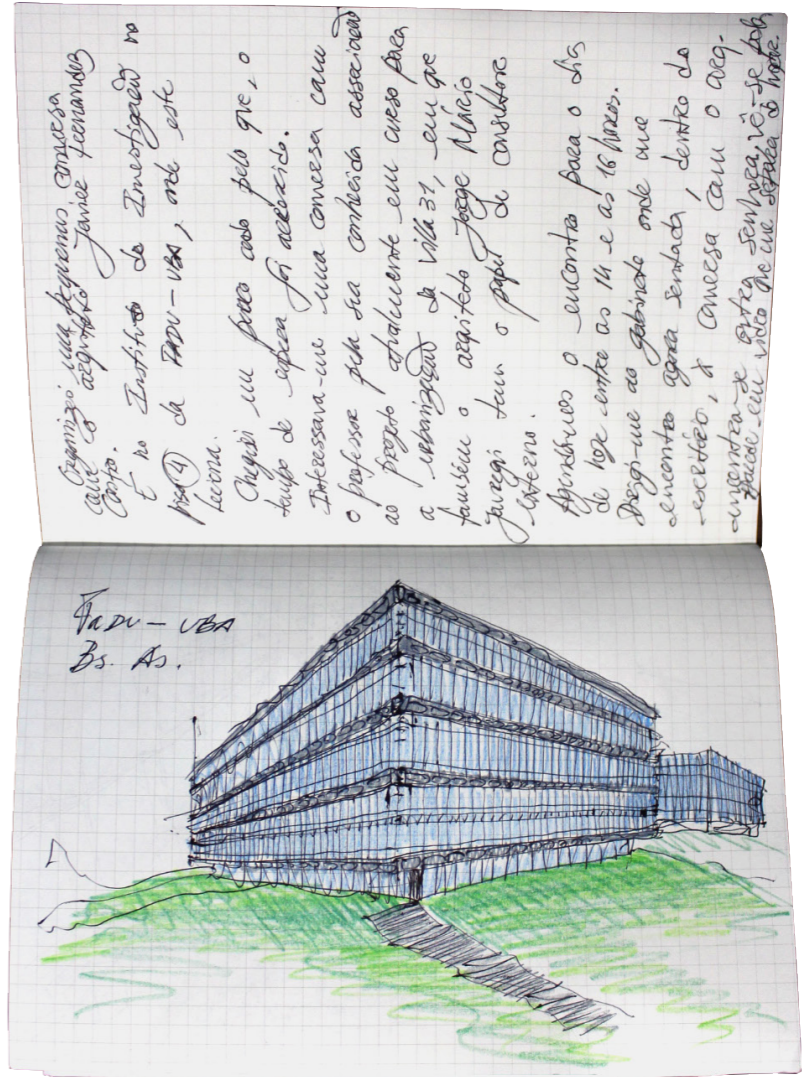 Organizei uma pequena conversa
com o arquiteto Javier Fernandez
Castro.
É no Instituto de Investigação no
piso 4 da FADU-UBA, onde este
leciona.
Cheguei um pouco cedo pelo que, o
tempo de espera foi acrescido.
Interessava-me uma conversa com
o professor pela sua conhecida associação
ao projeto atualmente em curso para
a urbanização da Villa 31, em que
também o arquiteto Jorge Mário
Jauregi tem o papel de consultor
externo.
Agendámos o encontro para o dia
de hoje entre as 14 e as 16 horas.
Dirigi-me ao gabinete onde me
encontro agora sentada, dentro do
escritório, à conversa com o arq.
encontra-se outra senhora, vê-se pela
em vidro que me separa do hall
FADU - UBA
Bs. As.